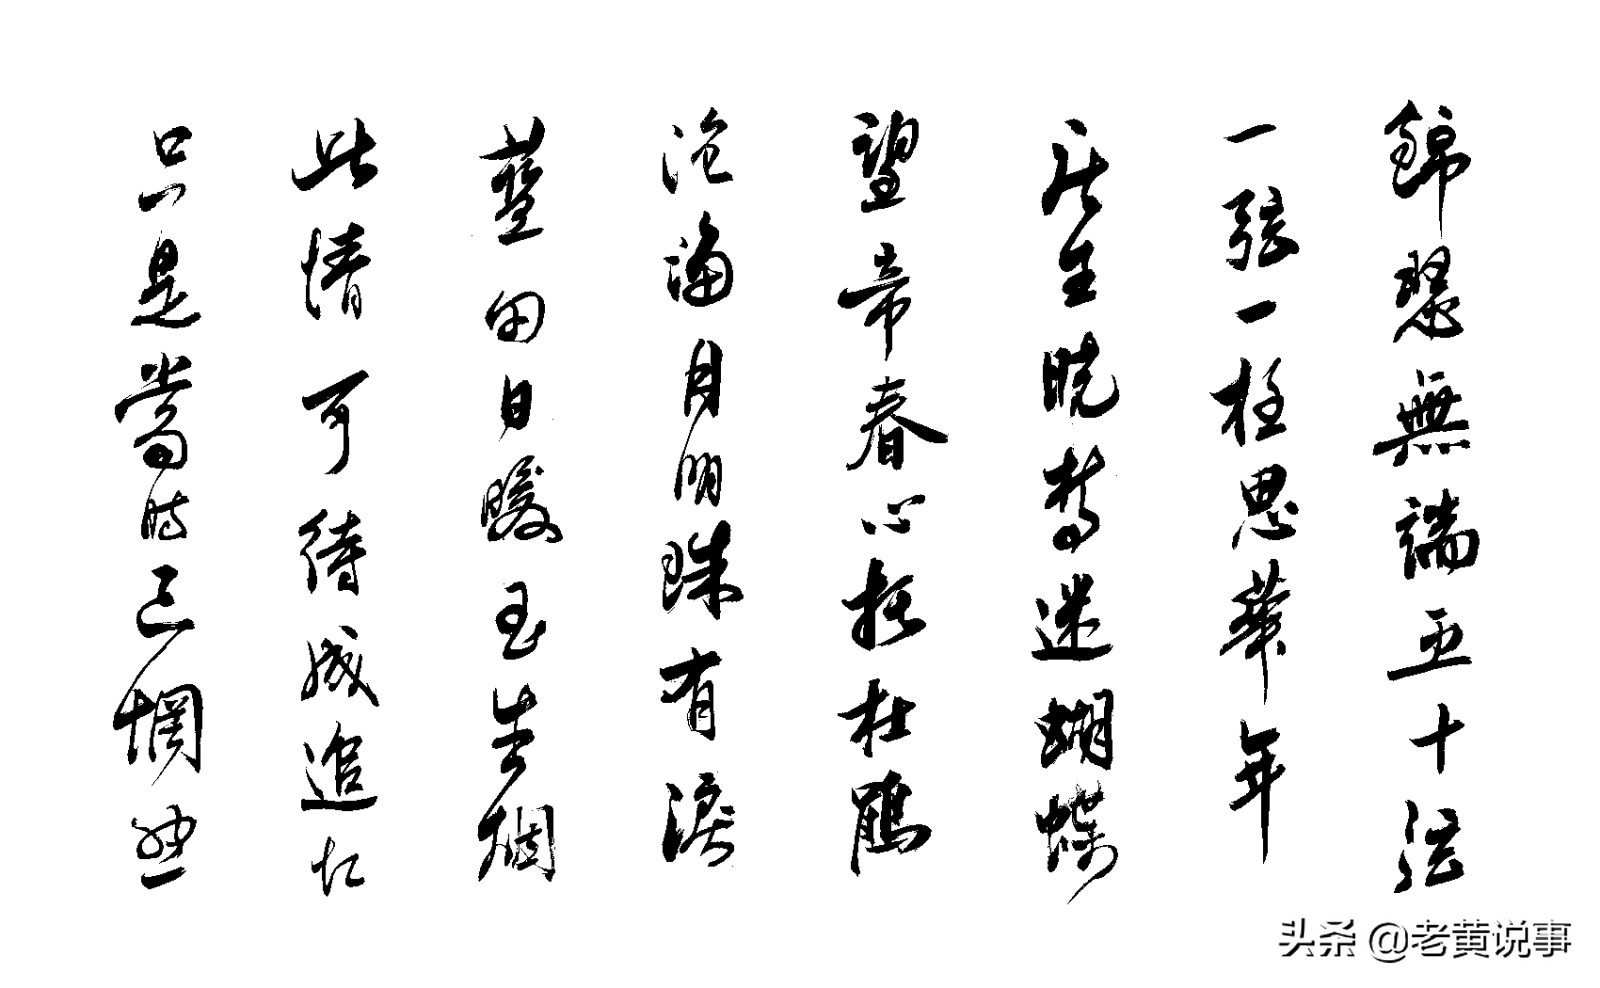 錦瑟無端五十弦
一弦一柱思華年
庄生曉夢迷蝴蝶
望帝春心托杜鵑
滄海月明珠有淚
藍田日暖玉生烟
此情可待成追忆
只是當時已惘然
头条 @老黄说事